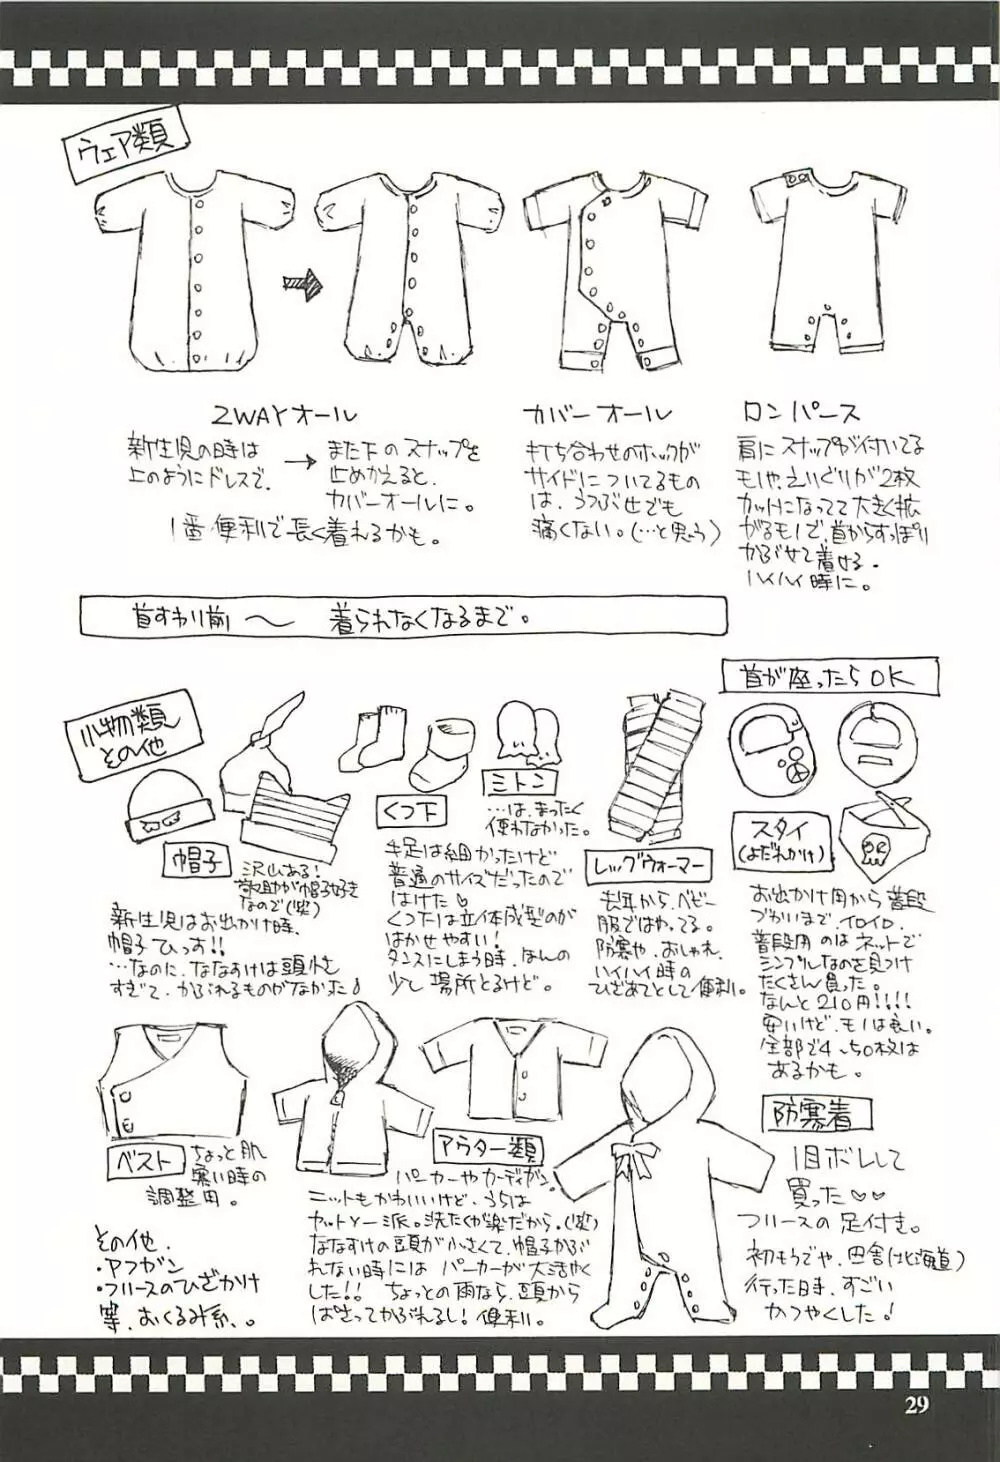 ウェア類
2WAYオール
新生児の時は
上のようにドレスで、
→
また下のスナップを
止めかえると、
カバーオールに。
1番便利で長く着れるかも。
カバーオール
打ち合わせのホックが
サイドについてるもの
は、うつぶせでも
痛くない。(…と思う)
ロンパース
肩にスナップが付いてる
モノや、えりぐりが2枚
カットになってて大きく拡
がるモノで、首からすっぽり
かぶせて着せる。
ハイハイ時に。
首すわり前 〜 着られなくなるまで。
首が座ったらOK
小物類
その他
帽子
沢山ある!
が帽子好き
なので(笑)
新生児はお出かけ時、
帽子ひっす!!
…なのに、ななすけは頭小さ
すぎて、かぶれるものがなかった♪
くつ下
手足は細かったけど
普通のサイズだったので
はけた♡
くつ下は立体成型のが
はかせやすい!
タンスにしまう時、ほんの
少し場所とるけど。
ミトン
…は、まったく
使わなかった。
レッグウォーマー
去年から、ベビー
服ではやってる。
防寒や、おしゃれ、
ハイハイ時の
ひざあてとして便利。
スタイ
(よだれかけ)
お出かけ用から普段
づかいまで、イロイロ。
普段用のはネットで
シンプルなのを見つけ
たくさん買った。
なんと210円!!!!
安いけど、モノは良い。
全部で4、50枚は
あるかも。
ベスト
ちょっと肌
寒い時の
調整用。
アウター類
パーカーやカーディガン。
ニットもかわいいけど、うちは
カットソー派。洗たくが楽だから。(笑)
ななすけの頭が小さくて、帽子かぶ
れない時には パーカーが大活やく
した!! ちょっとの雨なら、頭から
ばさってかぶれるし! 便利。
防寒着
1目ボレして
買った♡♡
フリースの足付き。
初もうでや、田舎(北海道)
行った時、すごい
かつやくした!
その他、
・アフガン
・フリースのひざかけ
等、おくるみ系。。
29